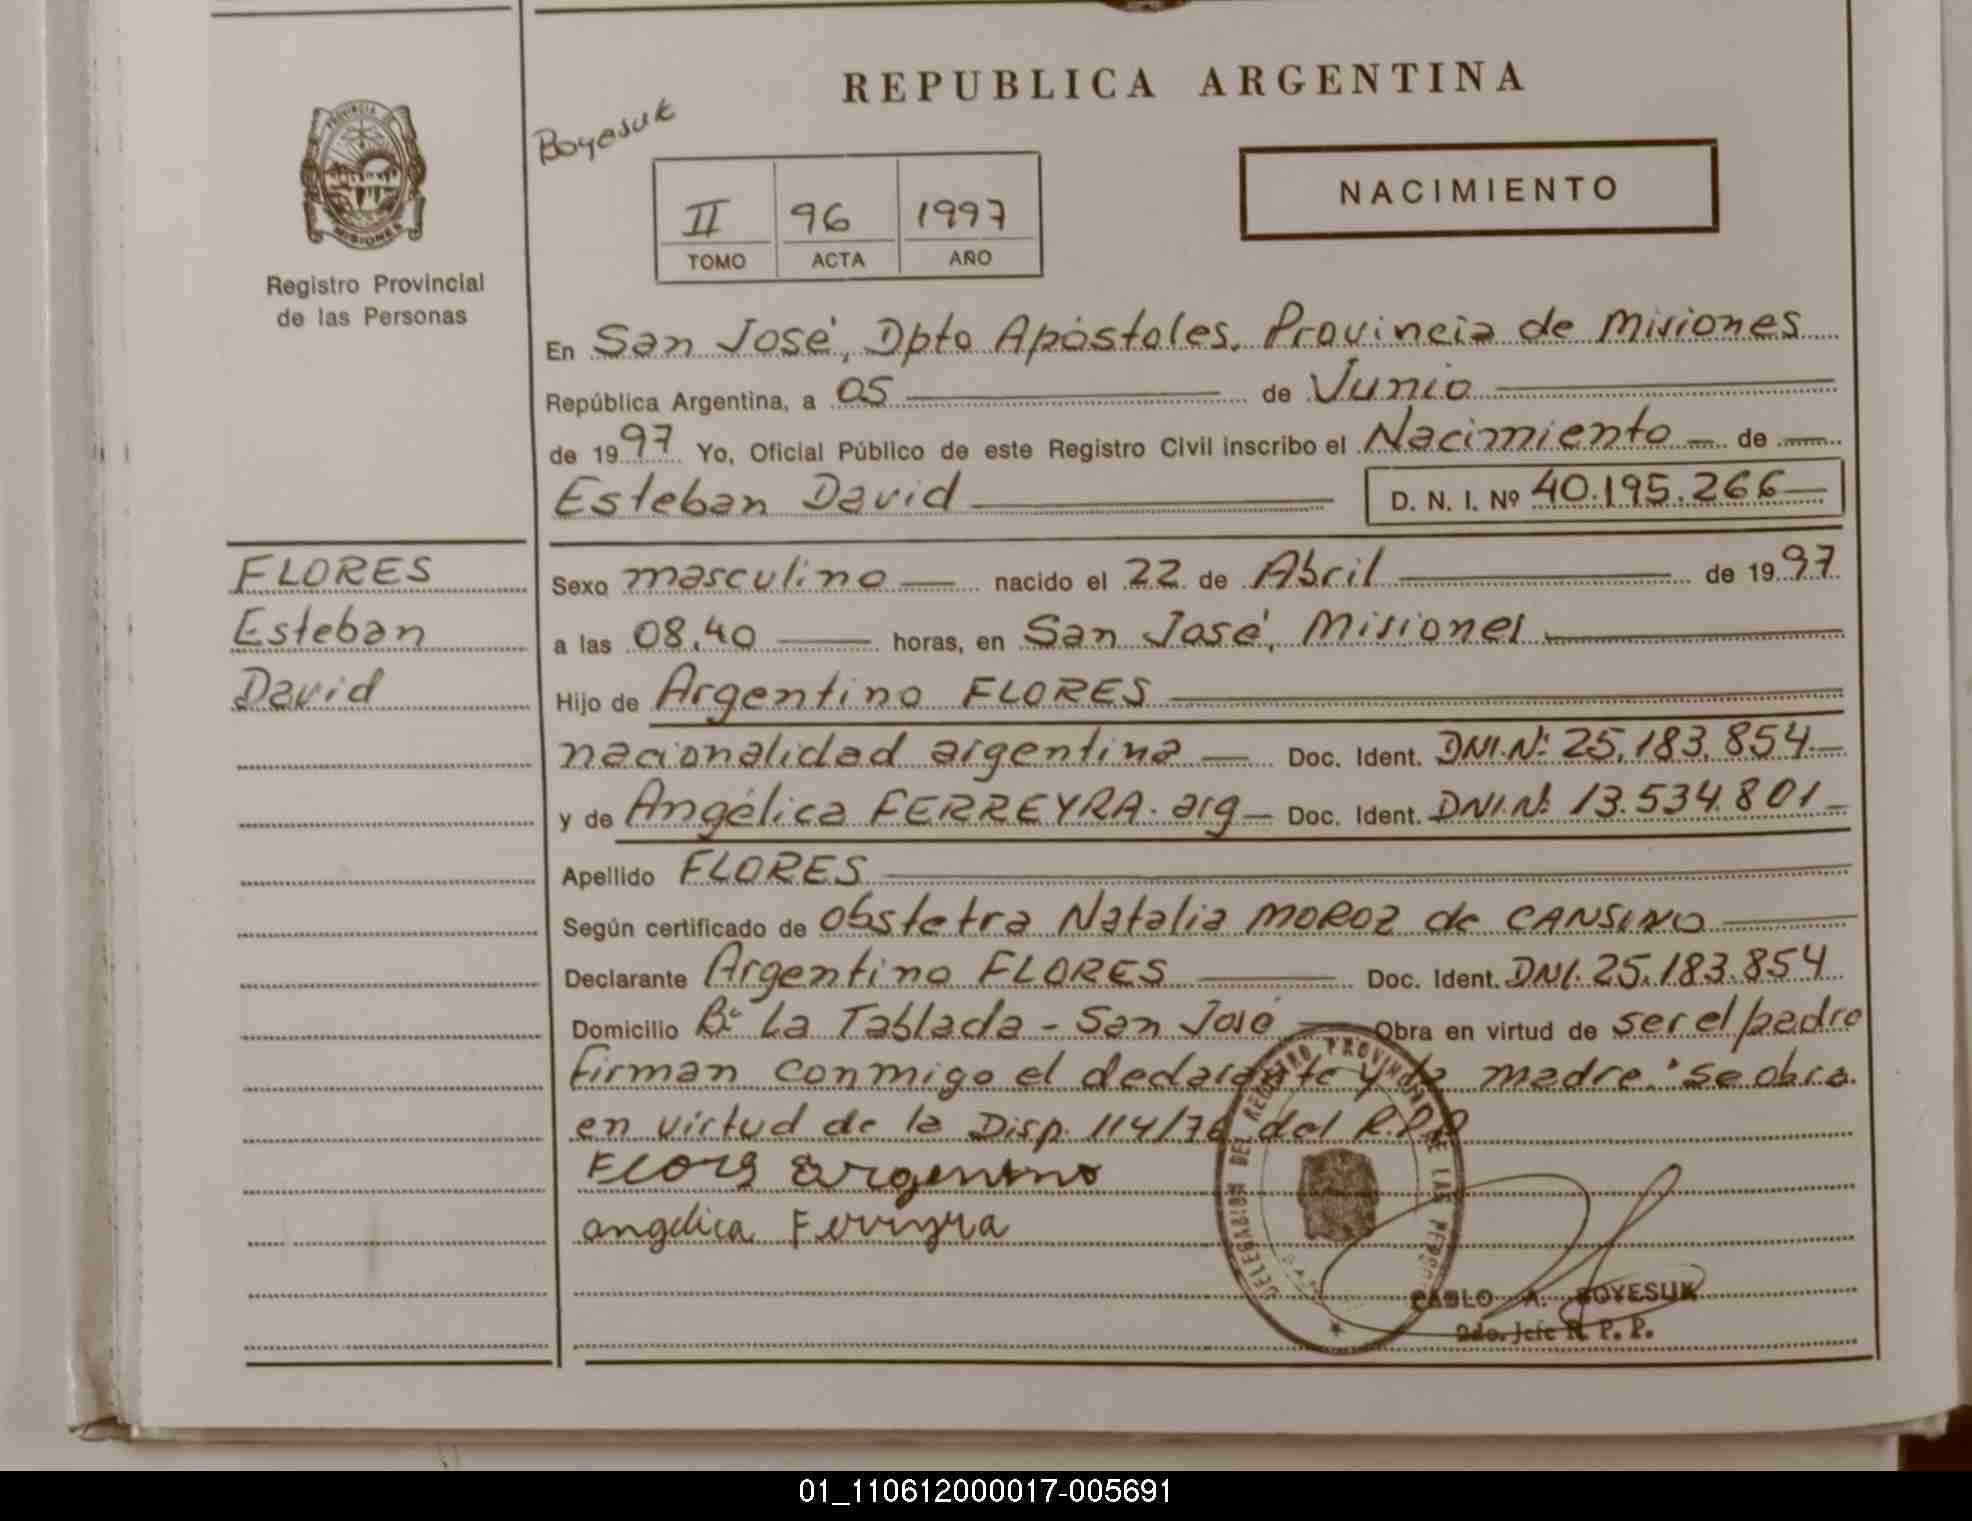 REPUBLICA ARGENTINA
Boyesuk
PROVINCIA DE
MISIONES
Registro Provincial
de las Personas
II 96 1997
TOMO ACTA AÑO
NACIMIENTO
En San José, Dpto Apóstoles, Provincia de Misiones
República Argentina, a 05 de Junio
de 1997 Yo, Oficial Público de este Registro Civil inscribo el Nacimiento de
Esteban David D. N. I. Nº 40.195.266
FLORES
Esteban
David
Sexo masculino nacido el 22 de Abril de 1997
a las 08,40 horas, en San José, Misiones
Hijo de Argentino FLORES
nacionalidad argentina Doc. Ident. DNI.Nº 25.183.854
y de Angélica FERREYRA. arg Doc. Ident. DNI.Nº 13.534.801
Apellido FLORES
Según certificado de obstetra Natalia MOROZ de CANSINO
Declarante Argentino FLORES Doc. Ident. DNI. 25.183.854
Domicilio Bº La Tablada - San José Obra en virtud de ser el padre
Firman conmigo el declarante y la madre. se obra
en virtud de la Disp. 114/76 del R.P.P
Flors argentino
angelica Ferryra
DELEGACION DEL REGISTRO PROVINCIAL DE LAS PERSONAS
PABLO A. BOYESUK
2do. Jefe R. P. P.
01_110612000017-005691